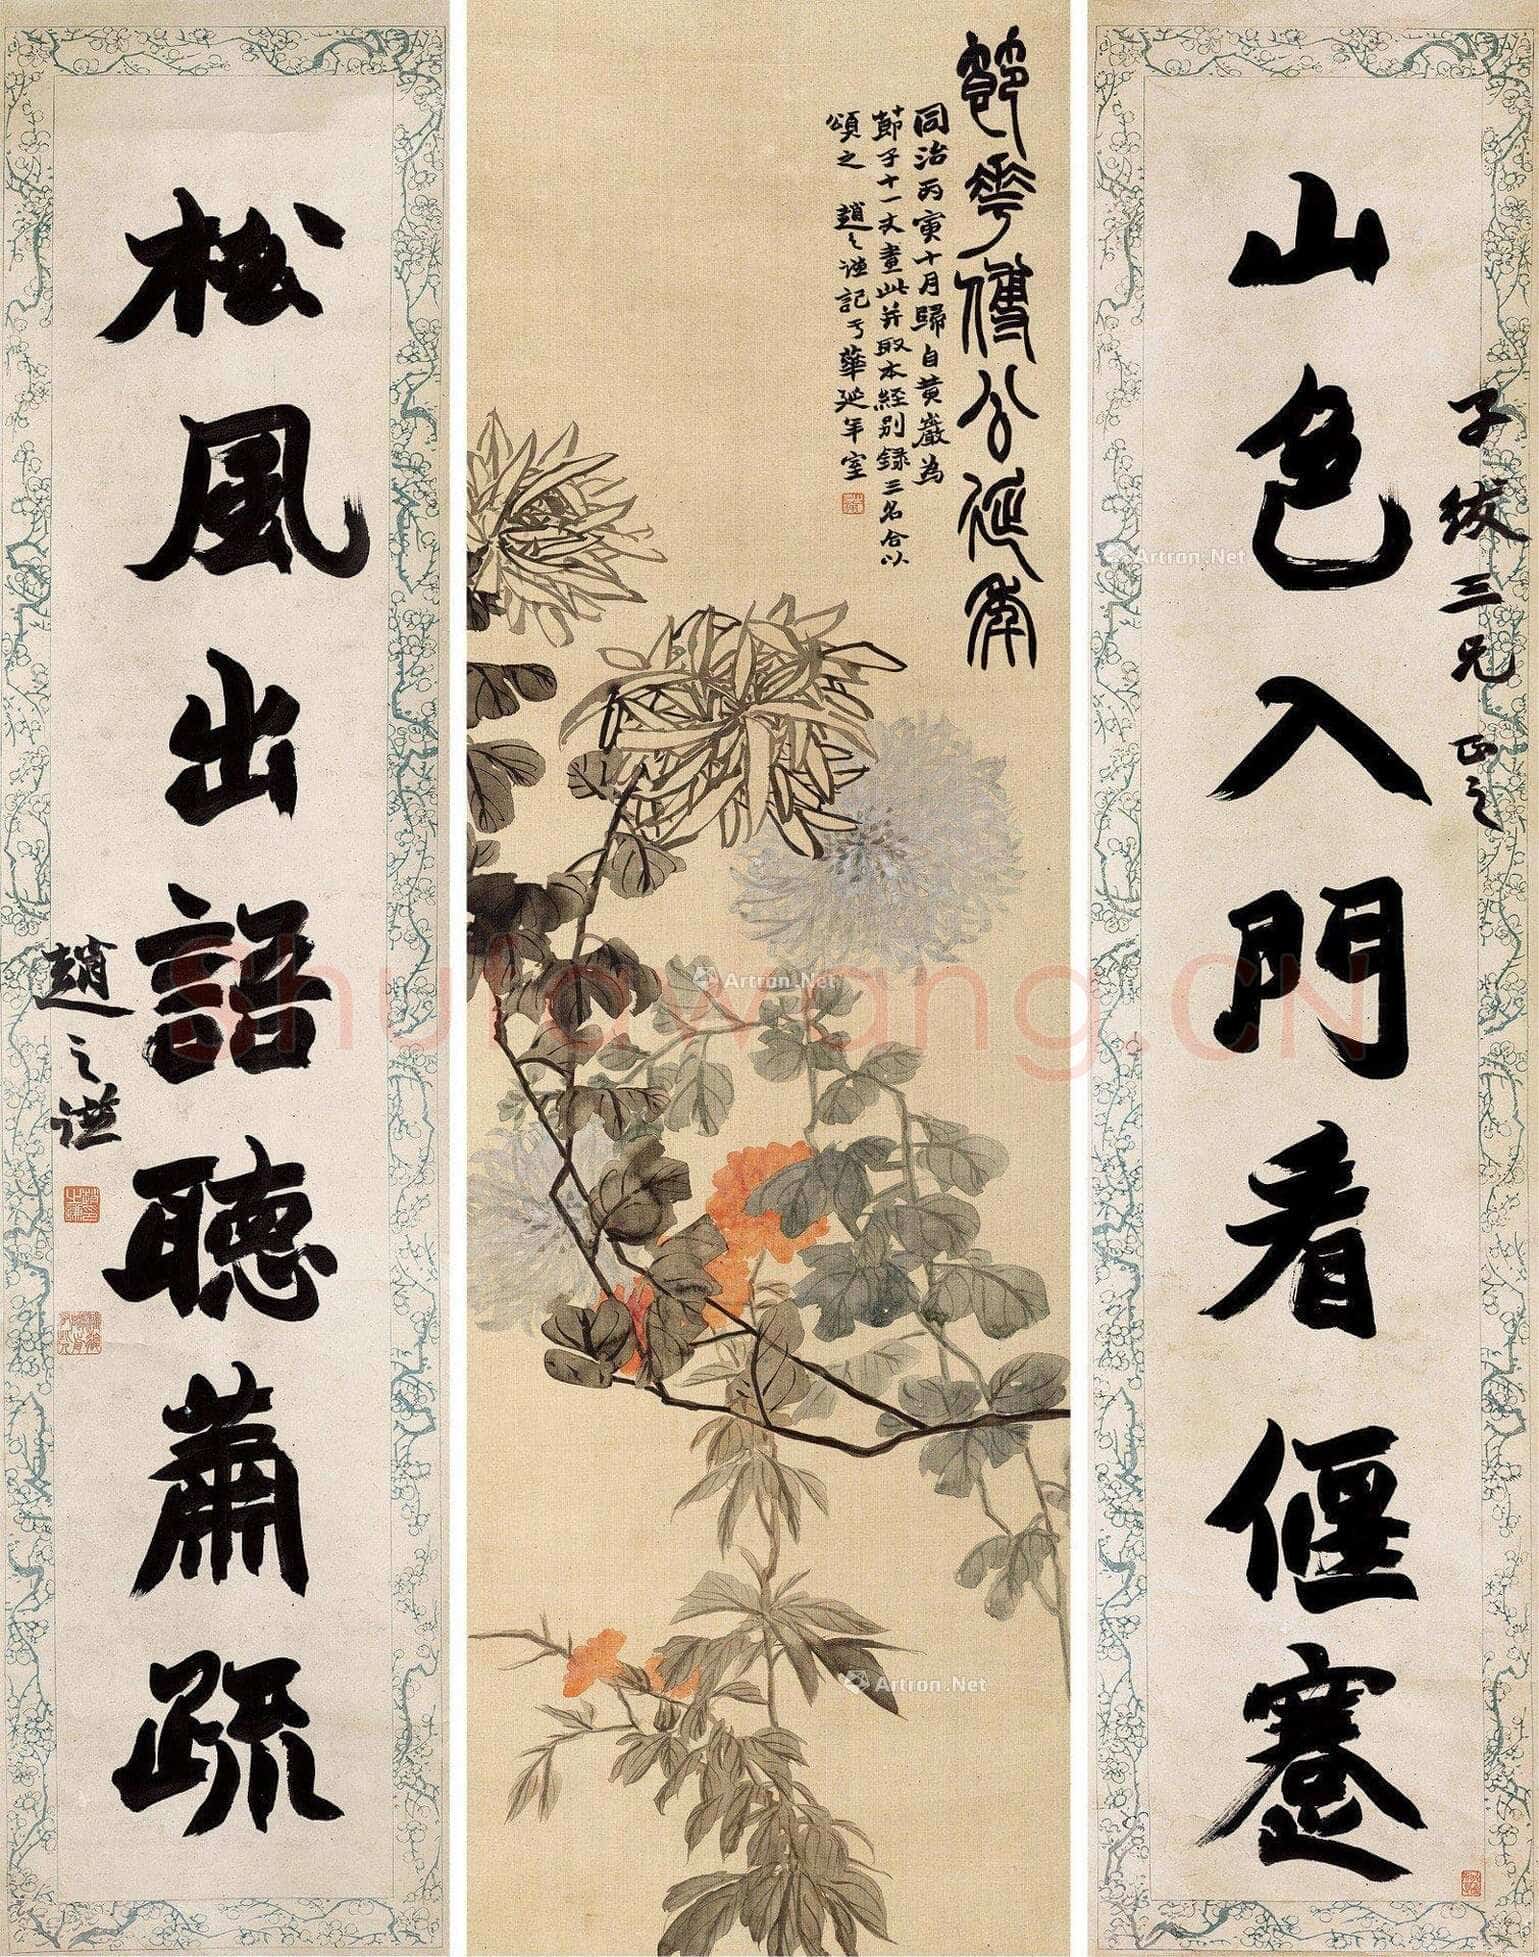 山色入門看偃蹇
子紱三兄正之
節華傅公延年
同治丙寅十月歸自黃巖為
節子十一丈畫此并取本經別錄三名合以
頌之 趙之謙記于華延年室
松風出語聽蕭疏
趙之謙
Artron.Net
Artron.Net
Artron.Net
Shufawang.CN